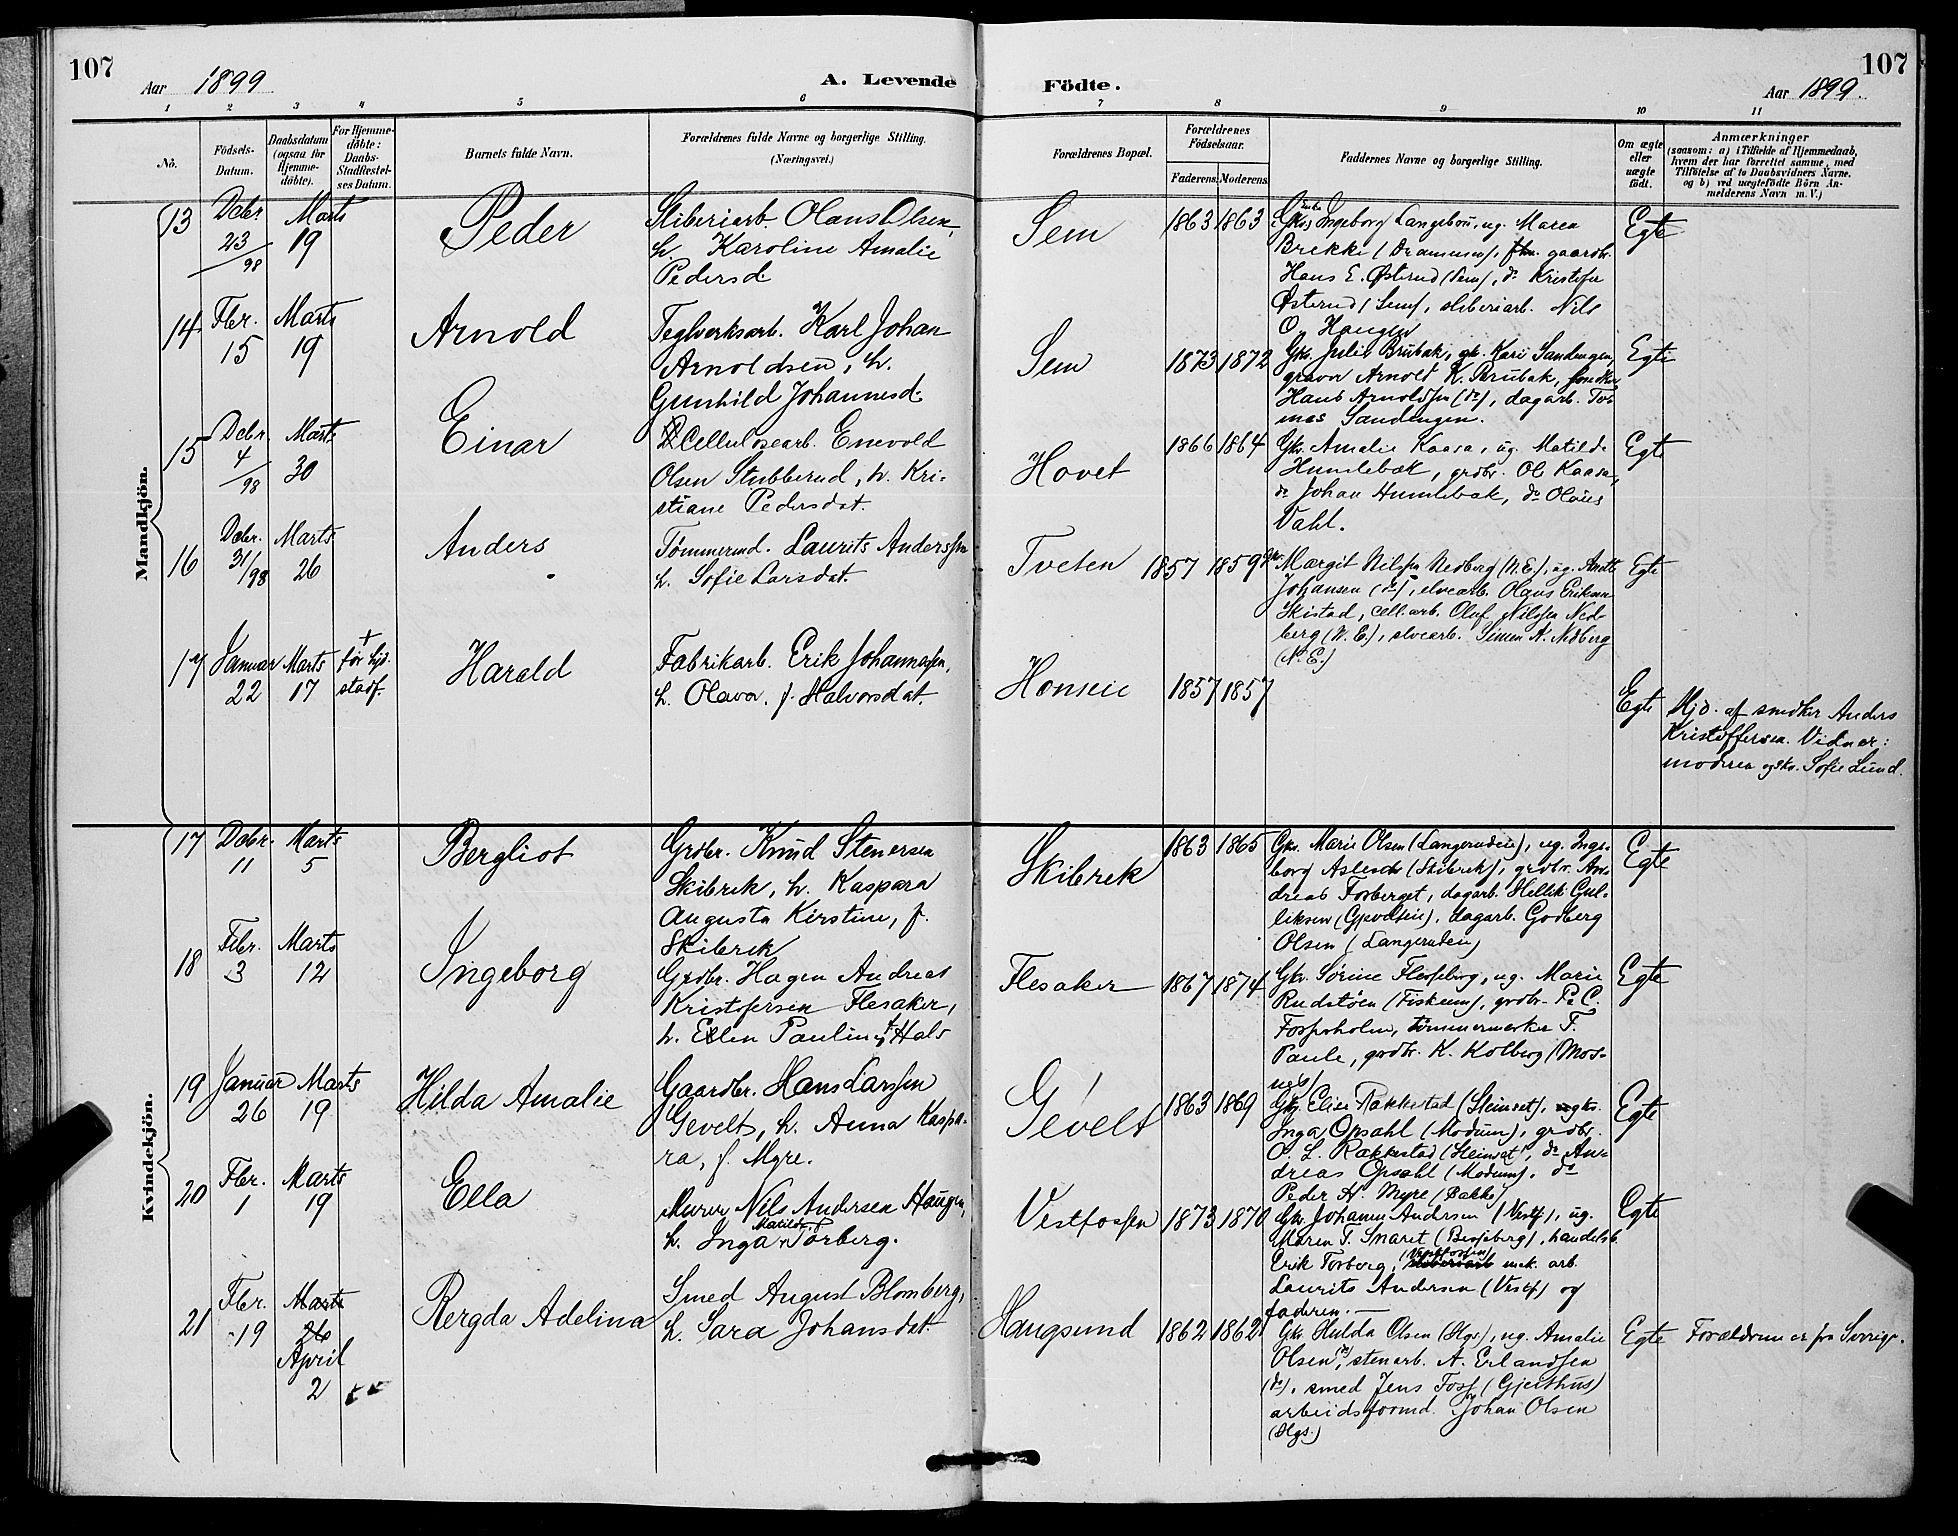 107
Aar 1899
A. Levende
Födte.
Aar 1899.
107
1 2 3 4 5 6 7 8 9 10 11
No.
Födsels-
Datum.
Daabsdatum
(ogsaa for
Hjemme-
döbte).
For Hjemme-
döbte:
Daabs-
Stadfæstel-
ses Datum.
Barnets fulde Navn.
Forældrenes fulde Navne og borgerlige Stilling.
(Næringsvei.)
Forældrenes Bopæl.
Forældrenes
Födselsaar.
Faderens. Moderens.
Faddernes Navne og borgerlige Stilling.
Om ægte
eller
uægte
födt.
Anmærkninger
(saasom: a) i Tilfælde af Hjemmedaab,
hvem der har forrettet samme, med
Tilföielse af to Daabsvidners Navne.
og b) ved uægtefödte Börn An-
melderens Navn m.V.)
Mandkjön.
13
Debr
23/98
Marts
19
Peder
Sliberiarb. Olaus Olsen,
h. Karoline Amalie
Pedersd.
Sem
1863 1863
Enke
Gks Ingeborg Langebru, ug. Maren
Brekke (Drammen), gaardbr.
Hans E. Østerud (Sem), do Kristofer
Østerud (Sem), sliberiarb. Nils
O. Haugen
Egte
14
Fbr.
15
Marts
19
Arnold
Teglverksarb. Karl Johan
Arnoldsen, h.
Gunhild Johannesd.
Sem
1873 1872
Gks. Julie Brubak, gk. Kari Sandengen,
graver Arnold K. Brubak, snedker
Hans Arnoldsen (do), dagarb. Tor
Sandengen.
Egte
15
Debr.
4/98
Marts
30
Einar
Cellulosearb. Enevold
Olsen Stubberud, h. Kri-
stiane Pedersdat.
Hovet
1866 1864
Gks. Amalie Kaasa, ug. Matilde
Humlebæk, grdbr. Ole Kaasa,
do Johan Humlebak, do Olaus
Dahl.
Egte
16
Debr.
31/98
Marts
26
Anders
Tømmermd. Laurits Anderssen
h. Sofie Larsdat.
Tveten
1857 1859
Gk. Margit Nilsen Nedberg (N.E.), ug. Anette
Johansen (do), elvearb. Olaus Eriksen
Skistad, cell.arb. Oluf Nilsen Ned-
berg (N.E.), elvearb. Simen A. Nedberg
(N.E.)
Egte
17
Januar
22
Marts
17
†
før hjd.
stadf.
Harald
Fabrikarb. Erik Johannesen,
h. Olava, f. Halvorsdat.
Honseie
1857 1857
Egte
Hjd. af snedker Anders
Kristoffersen. Vidner:
moderen og gks. Sofie Lund.
Kvindekjön.
17
Debr.
11
Marts
5
Bergliot
Grdbr. Knud Stenersen
Skibrek, h. Kaspara
Augusta Kirstine, f.
Skibrek
Skibrek
1863 1865
Gks. Marie Olsen (Langerudeie), ug. Inge-
borg Aslesen (Skibrek), grdbr. An-
dreas Forberget, dagarb. Hellik Gul-
liksen (Gjevelteie), dagarb. Godberg
Olsen (Langerudeie)
Egte
18
Febr.
3
Marts
12
Ingeborg
Grdbr. Hagen Andreas
Kristofersen Flesaker,
h. Ellen Pauline f. Hals
Flesaker
1867 1874
Gk. Sørine Flesseberg, ug. Marie
Rudstøen (Fiskum), grdbr. P. C.
Fossesholm, tømmermerker T.
Paule, grdbr. K. Kolberg (Mos-
Egte
19
Januar
26
Marts
19
Hilda Amalie
Gaardbr. Hans Larssen
Gevelt, h. Anna Kaspa-
ra, f. Myre.
Gevelt
1863 1869
Gks. Elise Rakkestad (Steinset), gks.
Inga Opsahl (Modum), grdbr.
O. L. Rakkestad (Steinset), do An-
dreas Opsahl (Modum), do
Peder H. Myre (Bakke)
Egte
20
Fbr.
1
Marts
19
Ella
Murer Nils Andersen Haugen,
Matilde f.
h. Inga Torberg.
Vestfossen
1873 1870
Gk. Johanne Andersen (Vestf), ug.
Maren T. Snaret (Besseberg), handelsb.
(Vestfossen)
Erik Torberg, mek. arb.
Laurits Andersen (Vestf) og
faderen.
Egte
21
Fbr.
19
Marts
26
April
2
Rergda Adelina
Smed August Blomberg,
h. Sara Johansdat.
Haugsund
1862 1862
Gks Hulda Olsen (Hgs), ug. Amalie
Olsen (do), stenarb. A. Erlandsen
(do), smed Jens Foss (Gjeithus)
arbeidsformd. Johan Olsen
(Hgs.)
Egte
Forældrene er fra Sverige.